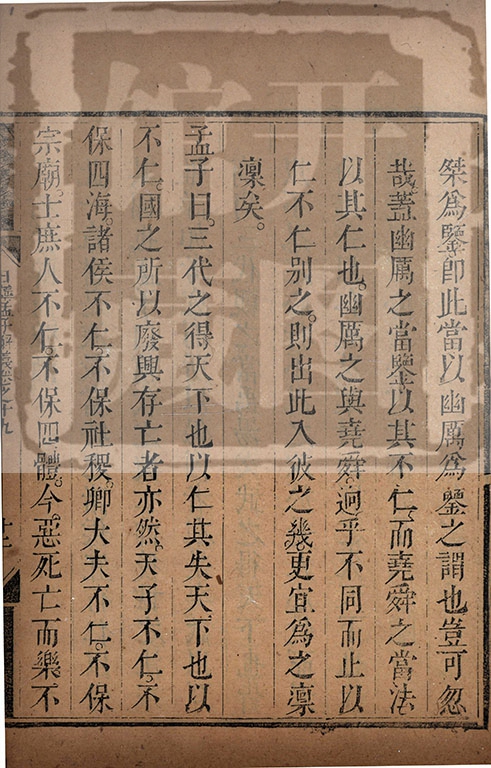 桀爲鑒即此當以幽厲爲鑒之謂也豈可忽
哉蓋幽厲之當鑒以其不仁而堯舜之當法
以其仁也幽厲之與堯舜迥乎不同而止以
仁不仁别之則出此入彼之幾更宜爲之凛
凛矣。
孟子曰三代之得天下也以仁其失天下也以
不仁。國之所以廢興存亡者亦然。天子不仁。不
保四海。諸侯不仁。不保社稷。卿大夫不仁。不保
宗廟。士庶人不仁。不保四體。今。惡死亡而樂不